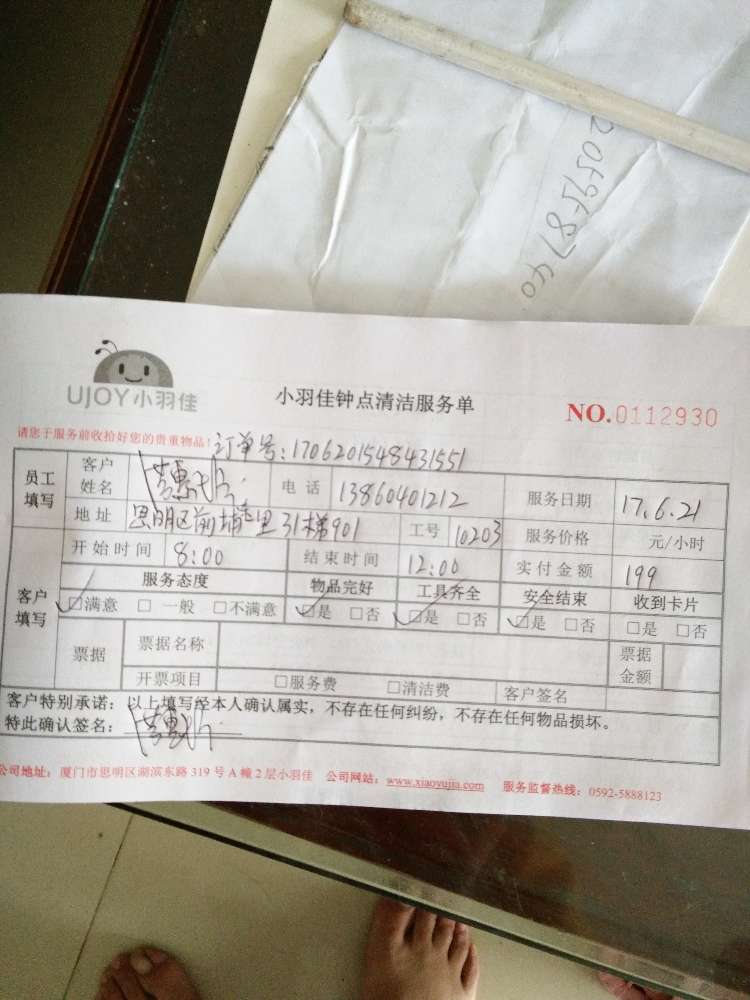 205958740
UJOY小羽佳
小羽佳钟点清洁服务单
NO.0112930
请您于服务前收拾好您的贵重物品! 订单号:1706201548431551
员工填写 客户姓名 电话 13860401212 服务日期 17.6.21
地址 思明区前埔 里31梯901 工号 10203 服务价格 元/小时
开始时间 8:00 结束时间 12:00 实付金额 199
客户填写 服务态度 物品完好 工具齐全 安全结束 收到卡片
☑满意 □一般 □不满意 ☑是 □否 ☑是 □否 ☑是 □否 □是 □否
票据 票据名称 票据金额
开票项目 □服务费 □清洁费 客户签名
客户特别承诺:以上填写经本人确认属实,不存在任何纠纷,不存在任何物品损坏。
特此确认签名:
公司地址:厦门市思明区湖滨东路319号A幢2层小羽佳 公司网站:www.xiaoyujia.com 服务监督热线:0592-5888123